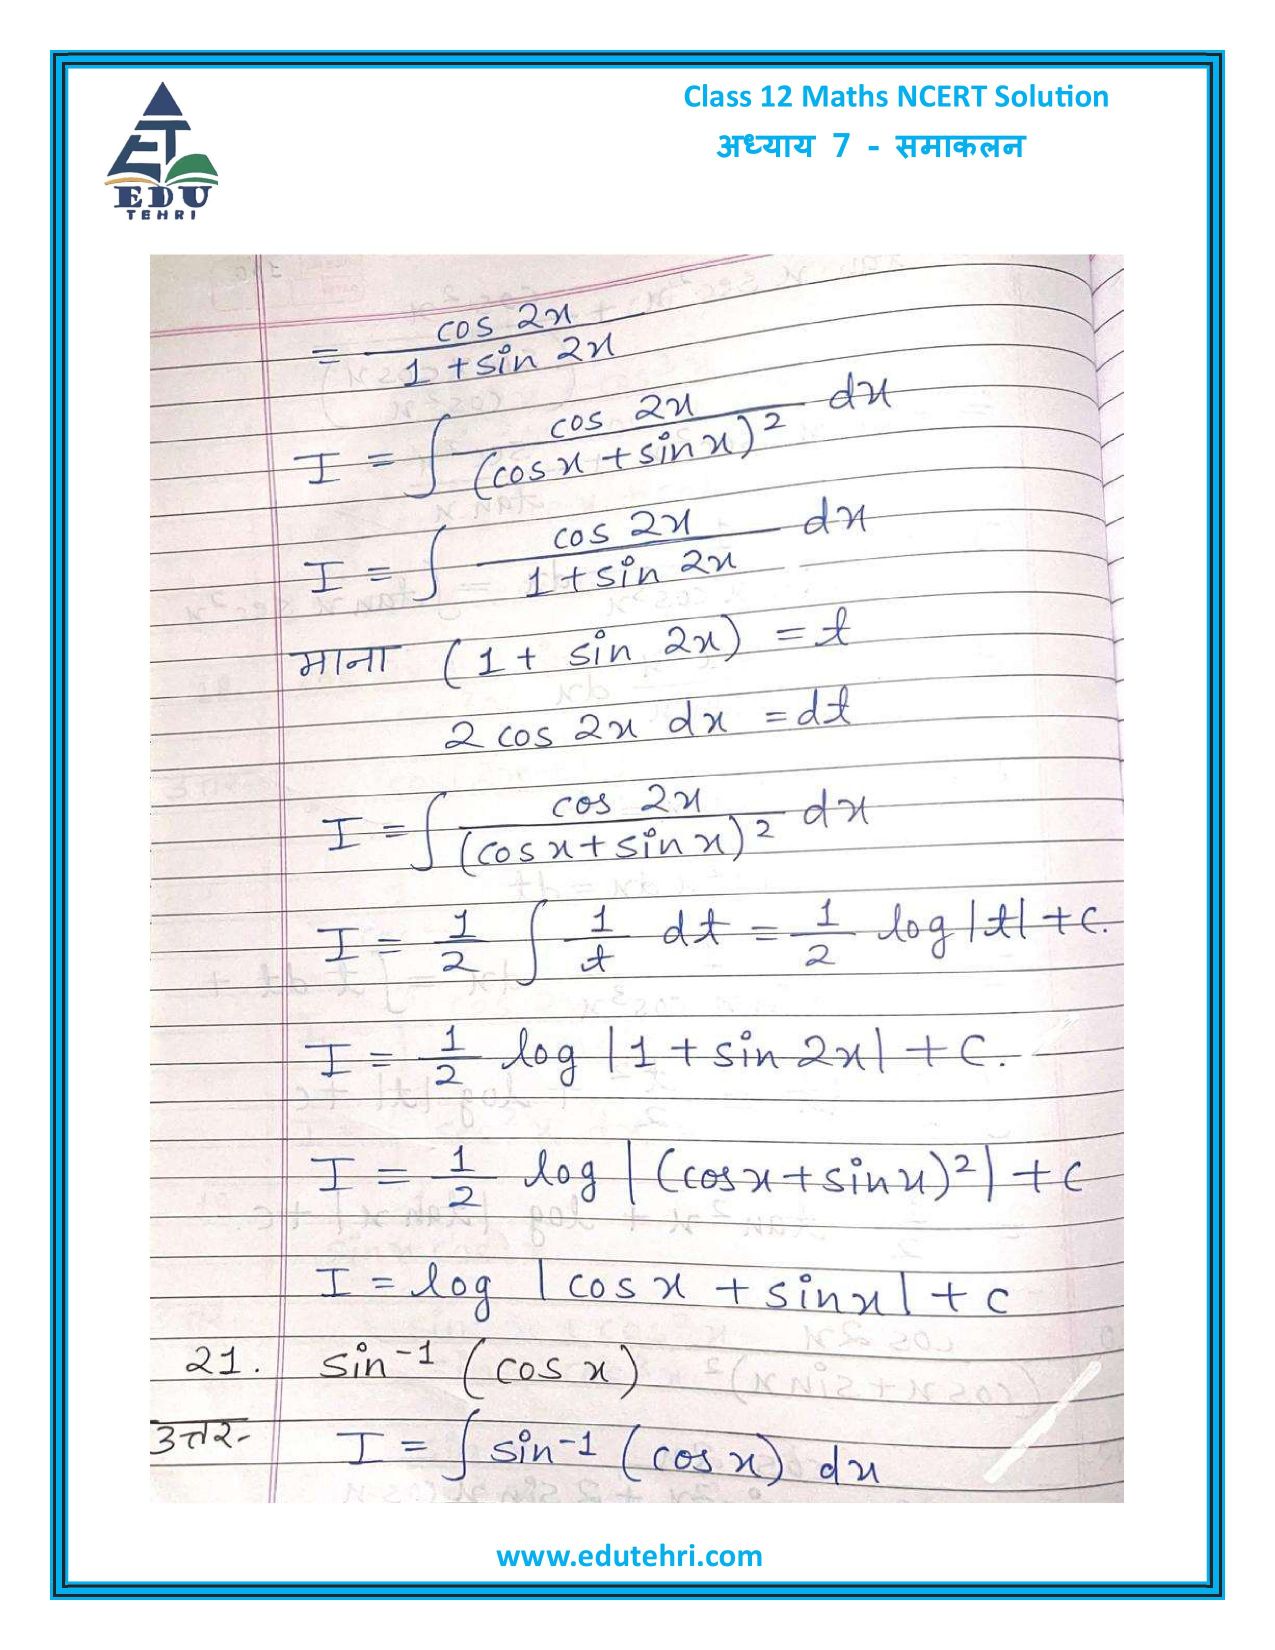 EDU
TEHRI
Class 12 Maths NCERT Solution
अध्याय 7 - समाकलन
= cos 2x / 1 + sin 2x
I = ∫ cos 2x / (cos x + sin x)² dx
I = ∫ cos 2x / 1 + sin 2x dx
माना (1 + sin 2x) = t
2 cos 2x dx = dt
I = ∫ cos 2x / (cos x + sin x)² dx
I = 1/2 ∫ 1/t dt = 1/2 log |t| + c.
I = 1/2 log |1 + sin 2x| + c.
I = 1/2 log |(cos x + sin x)²| + c
I = log |cos x + sin x| + c
21. sin⁻¹ (cos x)
उत्तर- I = ∫ sin⁻¹ (cos x) dx
www.edutehri.com